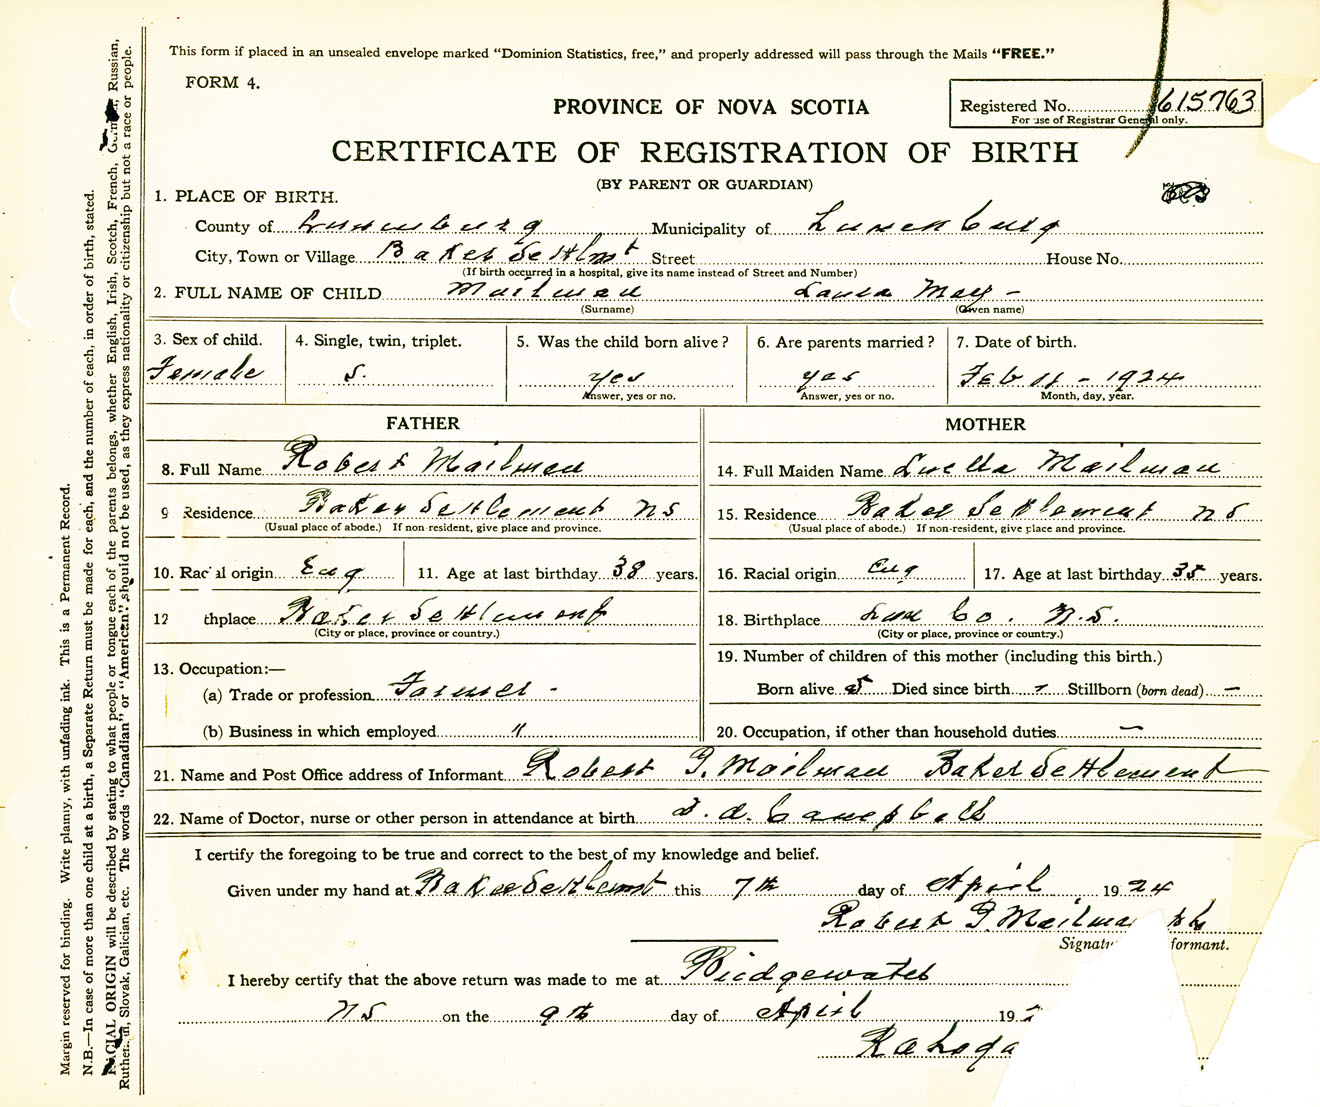 This form if placed in an unsealed envelope marked “Dominion Statistics, free,” and properly addressed will pass through the Mails “FREE.”
FORM 4.
PROVINCE OF NOVA SCOTIA
Registered No. 615763
For use of Registrar General only.
CERTIFICATE OF REGISTRATION OF BIRTH
(BY PARENT OR GUARDIAN)
1. PLACE OF BIRTH.
County of Lunenburg Municipality of Lunenburg
City, Town or Village Baker Settlmt Street House No.
(If birth occurred in a hospital, give its name instead of Street and Number)
2. FULL NAME OF CHILD Mailman Laura May -
(Surname) (Given name)
3. Sex of child. 4. Single, twin, triplet. 5. Was the child born alive? 6. Are parents married? 7. Date of birth.
Female S. yes yes Feb 11 - 1924
Answer, yes or no. Answer, yes or no. Month, day, year.
FATHER MOTHER
8. Full Name Robert Mailman 14. Full Maiden Name Luella Mailman
9 Residence Baker Settlement NS 15. Residence Baker Settlement NS
(Usual place of abode.) If non-resident, give place and province. (Usual place of abode.) If non-resident, give place and province.
10. Racial origin Eng 11. Age at last birthday 38 years. 16. Racial origin Eng 17. Age at last birthday 35 years.
12 thplace Baker Settlement 18. Birthplace Lun Co. N.S.
(City or place, province or country.) (City or place, province or country.)
13. Occupation:— 19. Number of children of this mother (including this birth.)
(a) Trade or profession Farmer - Born alive 5 Died since birth - Stillborn (born dead) —
(b) Business in which employed " 20. Occupation, if other than household duties —
21. Name and Post Office address of Informant Robert G. Mailman Baker Settlement
22. Name of Doctor, nurse or other person in attendance at birth D. A. Campbell
I certify the foregoing to be true and correct to the best of my knowledge and belief.
Given under my hand at Baker Settlemt this 7th day of April 1924
Robert G. Mailma
Signatu formant.
I hereby certify that the above return was made to me at Bridgewater
NS on the 9th day of April 192
Margin reserved for binding. Write plainly, with unfading ink. This is a Permanent Record.
N.B.—In case of more than one child at a birth, a Separate Return must be made for each, and the number of each, in order of birth, stated.
RACIAL ORIGIN will be described by stating to what people or tongue each of the parents belongs, whether English, Irish, Scotch, French, German, Russian,
Ruthenian, Slovak, Galician, etc. The words “Canadian” or “American” should not be used, as they express nationality or citizenship but not a race or people.